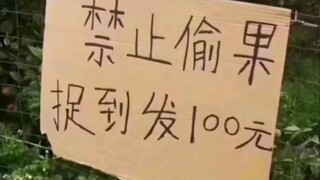 禁止偷果
捉到发100元